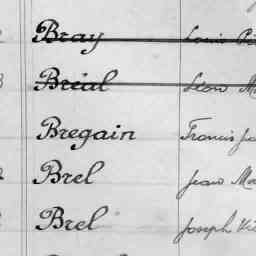 Bray Louis
Bréal Léon
Bregain Francis
Brel Jean
Brel Joseph